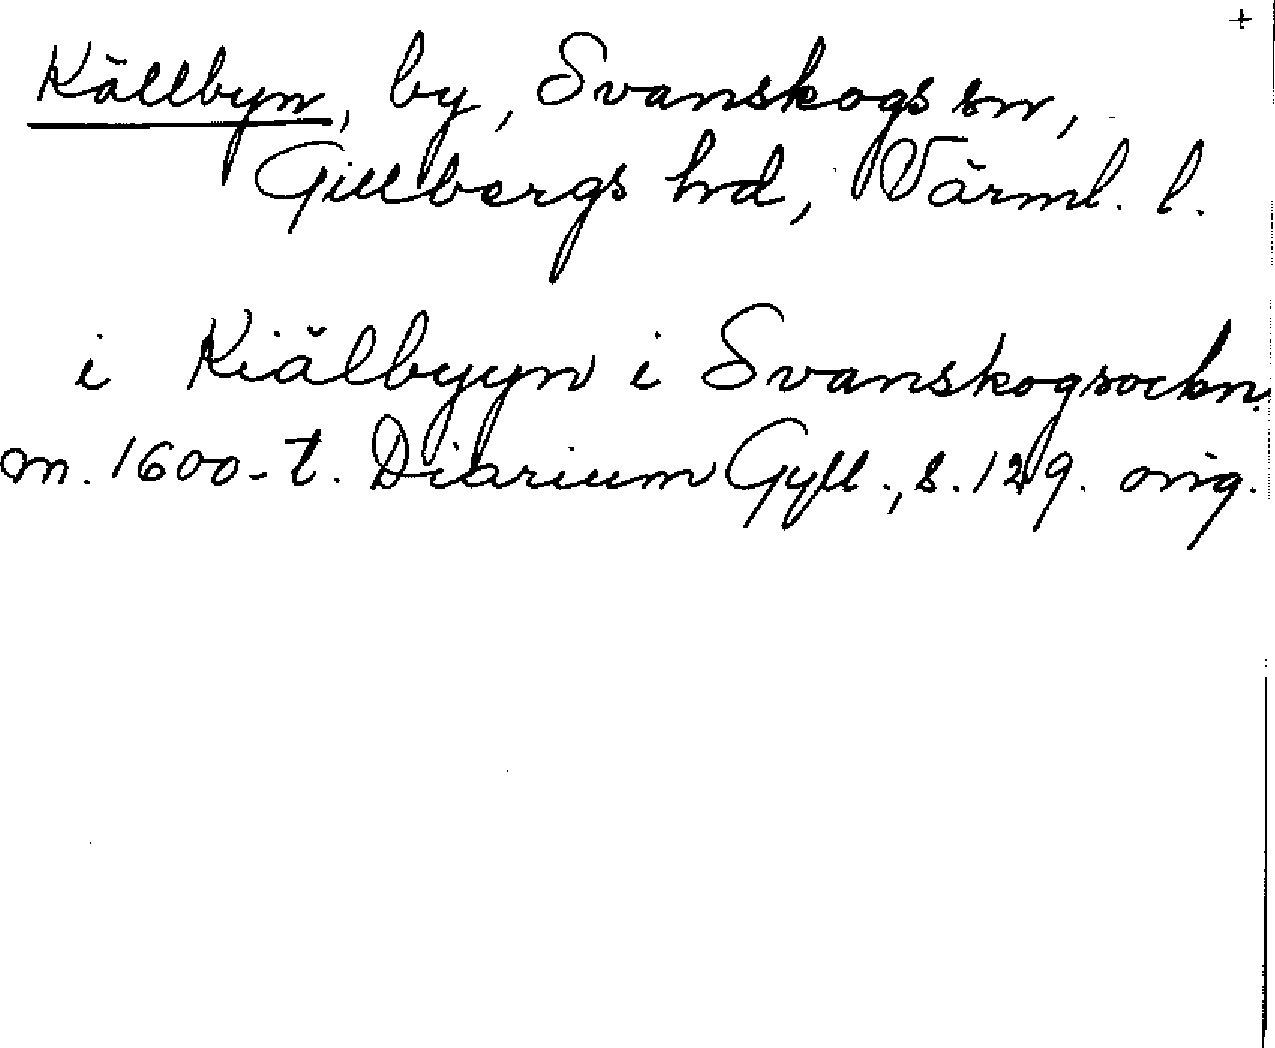 +
Källbyn, by, Svanskogs sn,
Gillbergs hd, Värml. l.
i Kiälbyyn i Svanskogsockn.
m. 1600-t. Diarium Gyll., s. 129. orig.